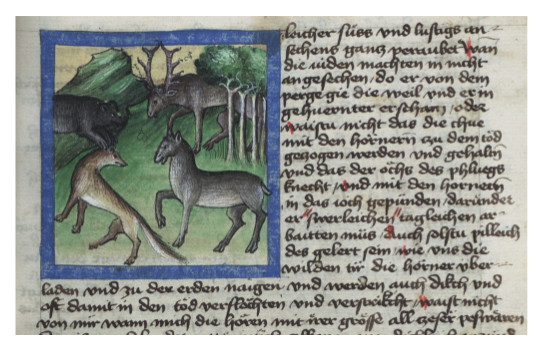 leicher süss vnd lustigs an
sechens gantz peraubet Wan
die iüden machten in nicht
angesechen / do er von dem
perge gie die weil vnd er in
gehuernter erschain / oder
waistu nicht das die chue
mit den hörnern zu dem tod
getzogen werden vnd gehaln
vnd das der öchs des phluegs
knecht / vnd mit den hornern
in das ioch gepunden / darunder
er swerleichen tagleichen ar
baitten müs / Auch solstu pilleich
des gelert sein / wie vns die
wilden tir die hörner vber
laden vnd zu der erden naigen vnd werden auch dikch vnd
oft damit in den töd verflochten vnd verstrikcht / waist nicht
von mir wann mich die hören mit irer grösse all